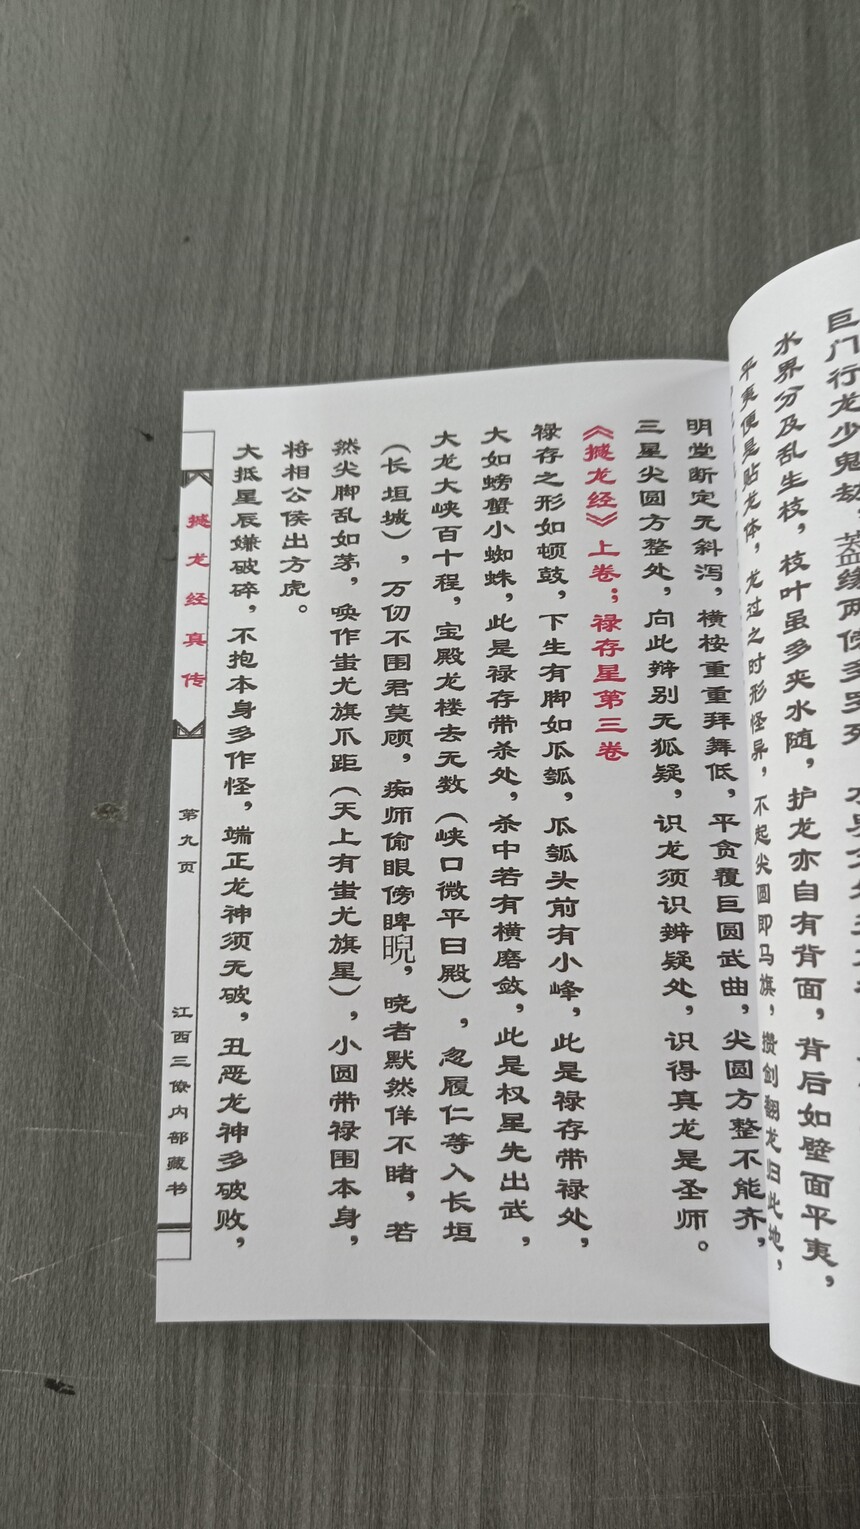 巨门行龙少鬼劫
水界分及乱生枝，枝叶虽多夹水随，护龙亦自有背面，背后如壁面平夷，
平夷便是贴龙体，龙过之时形怪异，不起尖圆即马旗，攒剑翻龙归此地，
明堂断定无斜泻，横桉重重拜舞低，平贪覆巨圆武曲，尖圆方整不能齐，
三星尖圆方整处，向此辨别无狐疑，识龙须识辨疑处，识得真龙是圣师。
《撼龙经》上卷；禄存星第三卷
禄存之形如顿鼓，下生有脚如瓜瓠，瓜瓠头前有小峰，此是禄存带禄处，
大如螃蟹小蜘蛛，此是禄存带杀处，杀中若有横磨敛，此是权星先出武，
大龙大峡百十程，宝殿龙楼去无数（峡口微平曰殿），忽履仁等入长垣
（长垣城），万仞不围君莫顾，痴师偷眼傍睥睨，晓者默然佯不睹，若
然尖脚乱如茅，唤作蚩尤旗爪距（天上有蚩尤旗星），小圆带禄围本身，
将相公侯出方虎。
大抵星辰嫌破碎，不抱本身多作怪，端正龙神须无破，丑恶龙神多破败，
撼龙经真传
第九页
江西三僚内部藏书